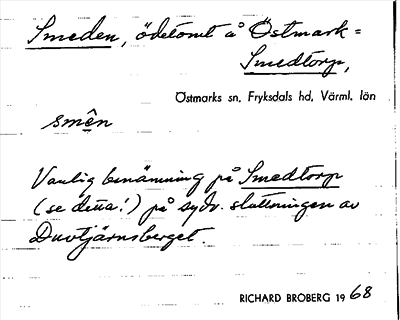 Smeden, ödetomt å Östmark=
Smedtorp,
Östmarks sn, Fryksdals hd, Värml. län
smên
Vanlig benämning på Smedtorp
(se detta!) på sydv. sluttningen av
Duvtjärnsberget.
RICHARD BROBERG 1968